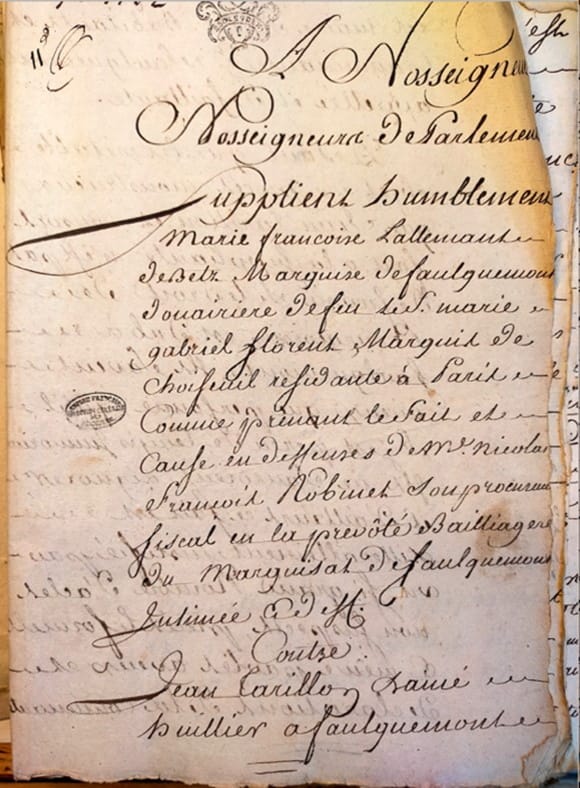 A Nosseigneu
Nosseigneurs de Parlemen
Supplient humblement
Marie francoise Lallemant
de Betz Marquise de faulquemont
douairiere de feu le S. marie
gabriel florent Marquis de
Choiseuil residante à Paris
Comme prenant le Fait et
Cause en deffenses de Me. Nicolas
François Robinet son procureur
fiscal en la prevôté Bailliagere
du Marquisat de faulquemont
Intimée
Contre
Jean Tarillon L'ainé
huillier a faulquemont